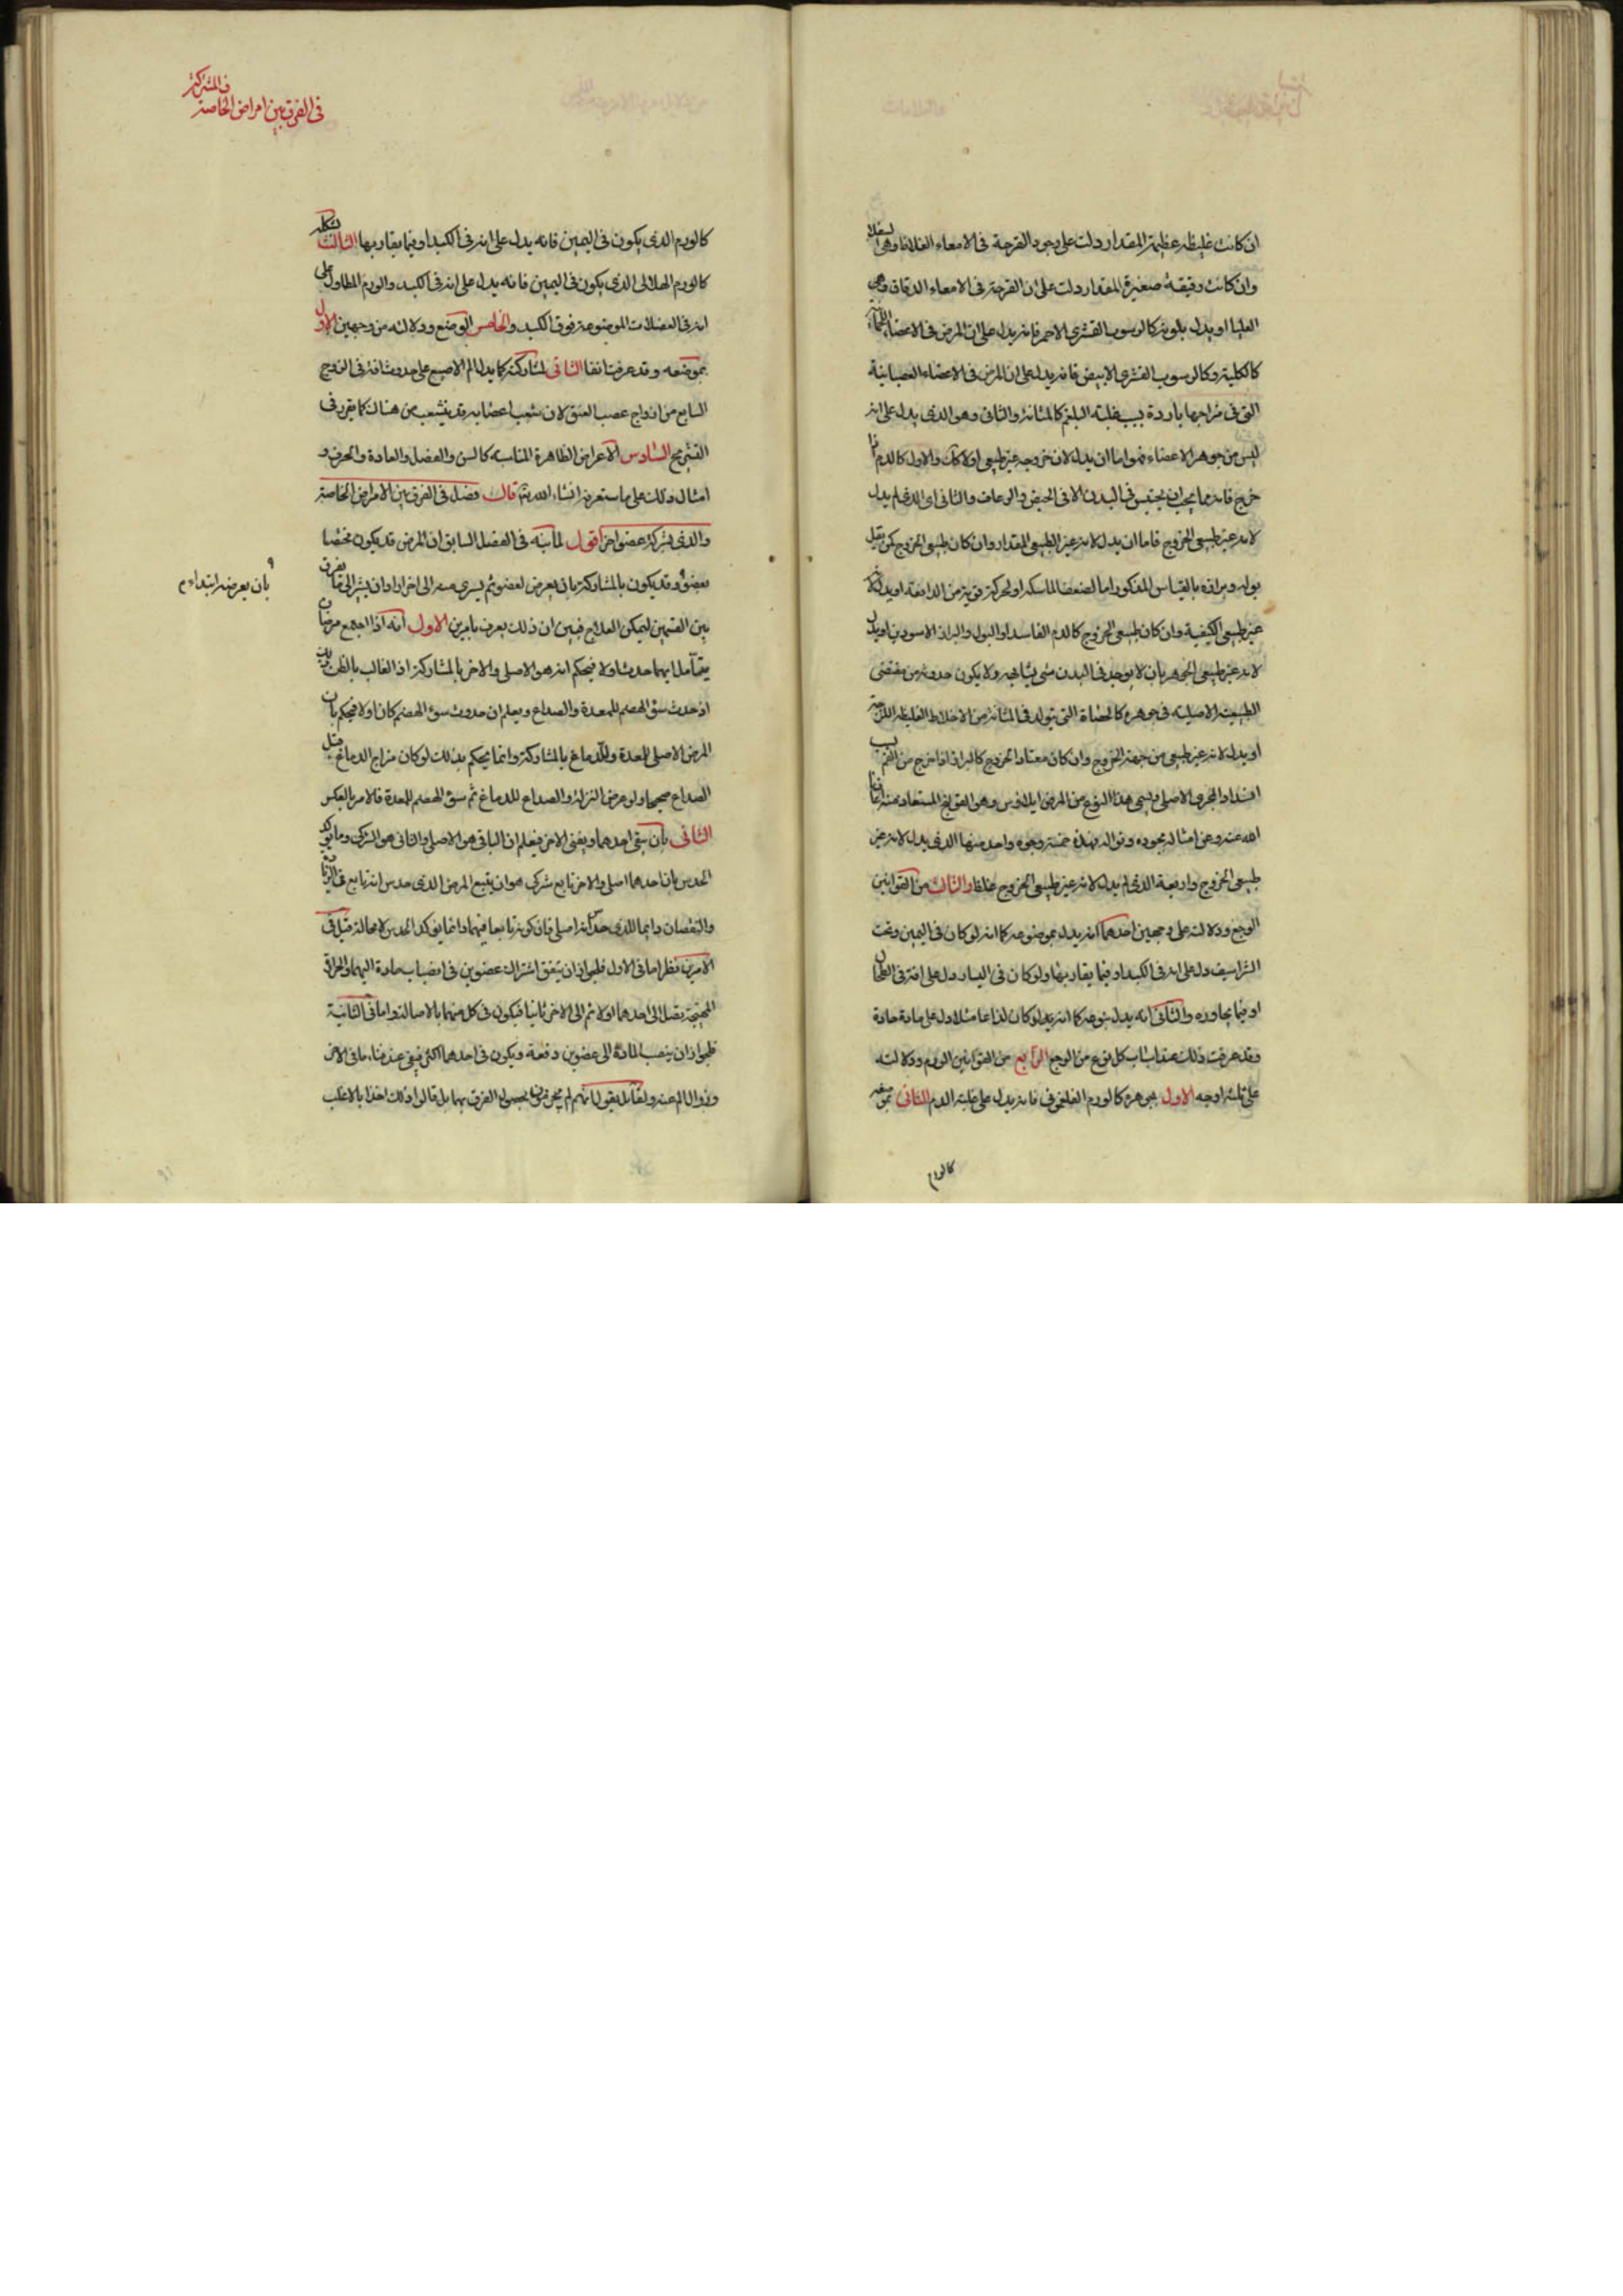 ان كانت غليظة عظيمة المقدار دلت على وجود القرحة فى الامعاء الغلاظ وهى السفلى
وان كانت دقيقة صغيرة المقدار دلت على ان القرحة فى الامعاء الدقاق وهى
العليا او يدل بلونه كالرسوب القشرى الاحمر فانه يدل على ان المرض فى الاعضاء اللحمية
كالكلية وكالرسوب القشرى الابيض فانه يدل على ان المرض فى الاعضاء العصبانية
التى فى مزاجها باردة بسبب غلبة البلغم كالمثانة والثانى وهو الذى يدل على انه
ليس من جوهر الاعضاء فهو اما ان يدل لان خروجه غير طبيعى اولا كان والاول كالدم اذا
خرج فانه مما يجب ان يحتبس فى البدن الا فى الحيض والرعاف والثانى اى الذى لم يدل
لانه غير طبيعى الخروج فاما ان يدل لانه غير الطبيعى المقدار وان كان طبيعى الخروج كمن يقل
بوله وبرازه بالقياس المذكور اما لضعف الماسكة او لحركة قوية من الدافعة او يدل لانه
غير طبيعى الكيفية وان كان طبيعى الخروج كالدم الفاسد او البول والبراز الاسودين او يدل
لانه غير طبيعى الجوهر بان لا يوجد فى البدن شى يشابهه ولا يكون حدوثه من مقتضى
الطبيعة الاصلية فى جوهره كالحصاة التى يتولد فى المثانة من الاخلاط الغليظة اللزجة
او يدل لانه غير طبيعى من جهة الخروج وان كان معتاد الخروج كالبراز اذا خرج من الفم لسبب
انسداد المجرى الاصلى ويسمى هذا النوع من المرض ايلاوس وهو القولنج المستعاذ منه اعاذنا
الله عنه وعن امثاله بجوده ونواله فهذه خمسة وجوه واحد منها الذى يدل لانه غير
طبيعى الخروج واربعة الذى لم يدل لانه غير طبيعى الخروج مطلقا والثالث من القوانين
الوجع ودلالته على وجهين احدهما انه يدل بموضوعه كما انه لو كان فى اليمين وتحت
الشراسيف دل على انه فى الكبد او فيما يقاربها ولو كان فى اليسار دل على انه فى الطحال
او فيما يجاوره والثانى انه يدل بنوعه كما انه يدل لو كان لذاعا مثلا دل على مادة حادة
وقد عرفت ذلك عند اسباب كل نوع من الوجع الرابع من القوانين الورم ودلالته
على ثلثة اوجه الاول بجوهره كالورم الفلغمونى فانه يدل على غلبة الدم الثانى بموضعه
كالورم
فى الفرق بين امراض الخاصة
والمشركة
كالورم الذى يكون فى اليمين فانه يدل على انه فى الكبد او فيما يقاربها الثالث بشكله
كالورم الهلالى الذى يكون فى اليمين فانه يدل على انه فى الكبد والورم المطاول على
انه فى العضلات الموضوعة فوق الكبد والخامس الوضع ودلالته من وجهين الاول
بموضعه وقد عرفت انفا الثانى لمشاركته كما يدل الم الاصبع على حدوث افة فى الزوج
السابع من ازواج عصب العنق لان شعب اعصابه قد ينشعب من هناك كما يقرر فى
التشريح السادس الاعراض الظاهرة المناسبة كالسن والفصل والعادة والحرف و
امثال ذلك على ما ستعرفه انشاء الله تعالى قال فصل فى الفرق بين الامراض الخاصة
والذى بشركة عضو اخر اقول لما نبه فى الفصل السابق ان المرض قد يكون مختصا
بعضو وقد يكون بالمشاركة بان يعرض لعضو ثم يسرى منه الى اخر اراد ان يشير الى ما يفرق
بان يعرضه ابتداء
بين القسمين ليمكن العلاج فبين ان ذلك يعرف بامرين الاول انه اذا اجتمع مرضان
يتأمل ايهما حدث اولا فيحكم انه هو الاصلى والاخر بالمشاركة اذ الغالب بالظن ذلك
اذ حدث سوء الهضم للمعدة والصداع ويعلم ان حدوث سوء الهضم كان اولا فيحكم بان
المرض الاصلى للمعدة وللدماغ بالمشاركة وانما يحكم بذلك لو كان مزاج الدماغ قبل
الصداع صحيحا ولو عرض النزلة والصداع للدماغ ثم سوء الهضم للمعدة فالامر بالعكس
الثانى بان يبقى احدهما ويفنى الاخر فيعلم ان الباقى هو الاصلى والفانى هو الشركى ومما يؤكد
الحدس بان احدهما اصلى والاخر تابع شركى هو ان يتبع المرض الذى حدس انه تابع فى الزيادة
والنقصان دايما للذى حدس انه اصلى فان كونه تابعا فيهما دائما يؤكد الحدس لا محالة قيل فى
الامرين نظر اما فى الاول فلجواز ان يتفق اشتراك عضوين فى انصباب مادة اليهما والحرافة
المهيجة يصل الى احدهما اولا ثم الى الاخر ثانيا فيكون فى كل منهما بالاصالة واما فى الثانية
فلجواز ان ينصب المادة الى عضوين دفعة ويكون فى احدهما اكثر فيبقى عند فناء ما فى الاخر
وزوال الم عنه ولقائل يقول انهم لم يجزموا بحصول الفرق بهما بل قالوا ذلك اخذا بالاغلب